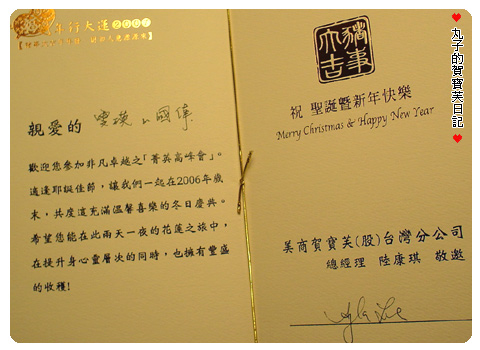 年行大運2007
親愛的
歡迎您參加非凡卓越之「菁英高峰會」。
適逢耶誕佳節，讓我們一起在2006年歲
末，共度這充滿溫馨喜樂的冬日慶典。
希望您能在此兩天一夜的花蓮之旅中，
在提升身心靈層次的同時，也擁有豐盛
的收穫!
豬事大吉
祝 聖誕暨新年快樂
Merry Christmas & Happy New Year
美商賀寶芙(股)台灣分公司
總經理 陸康琪 敬邀
♥丸子的賀寶芙日記♥